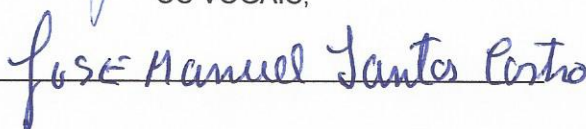 OS VOGAIS,
José Manuel Santos Castro